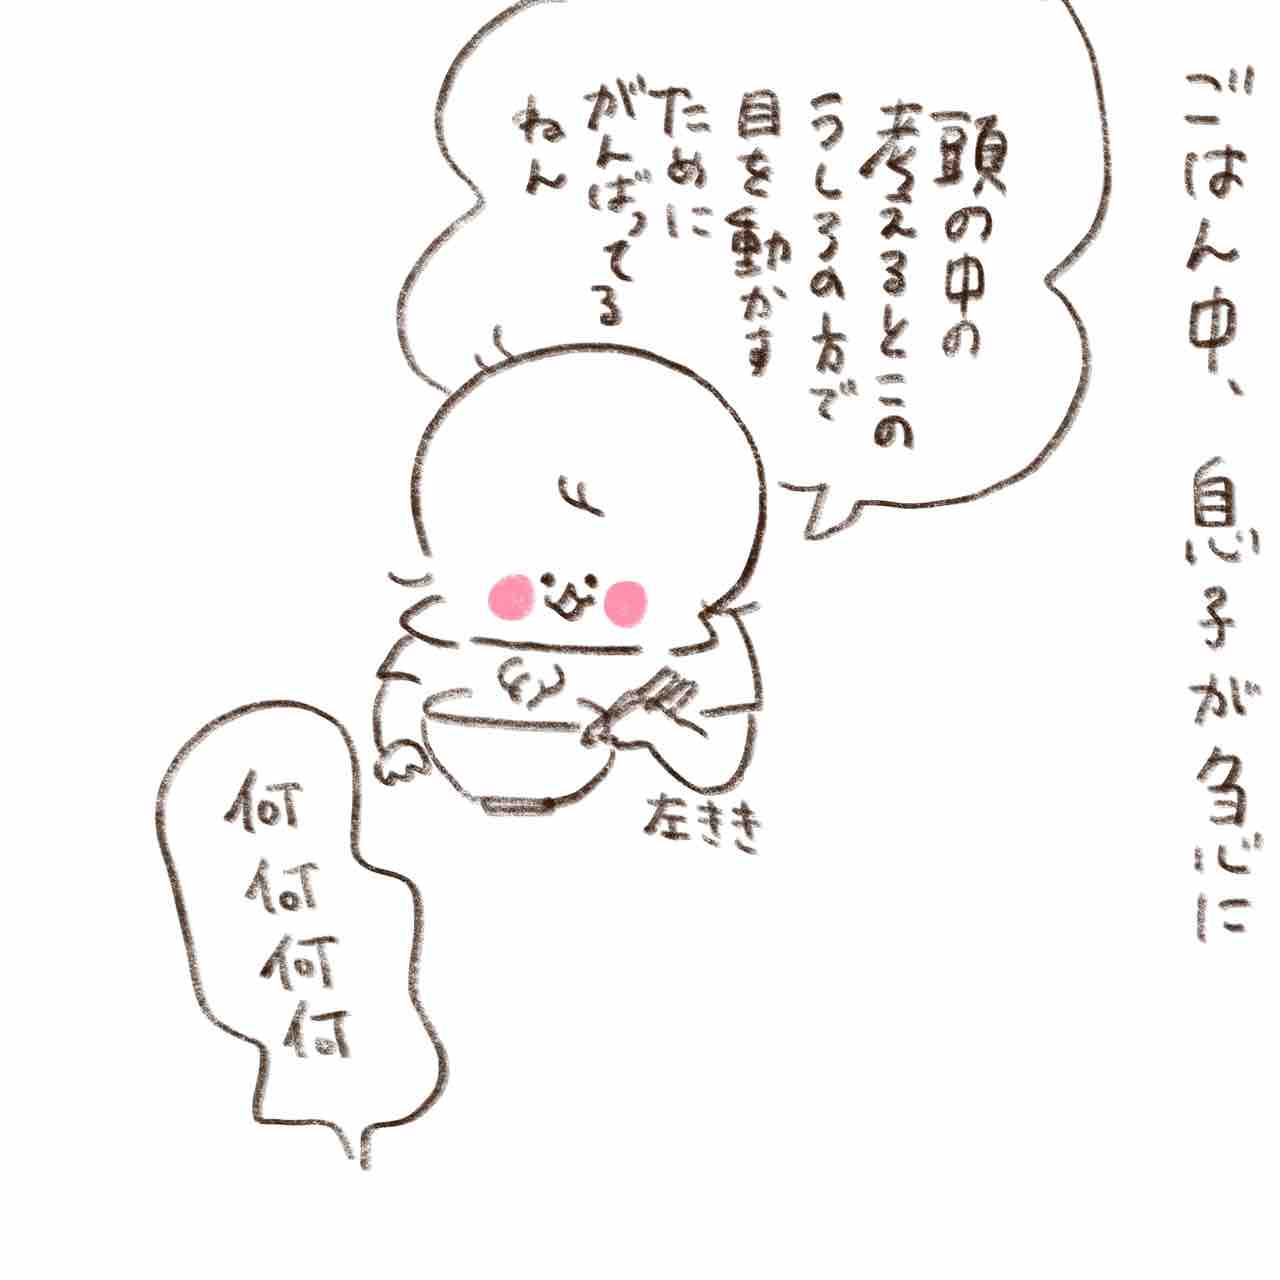 ごはん中、息子が急に
頭の中の
考えるとこの
うしろの方で
目を動かす
ために
がんばってる
ねん
左きき
何
何
何
何